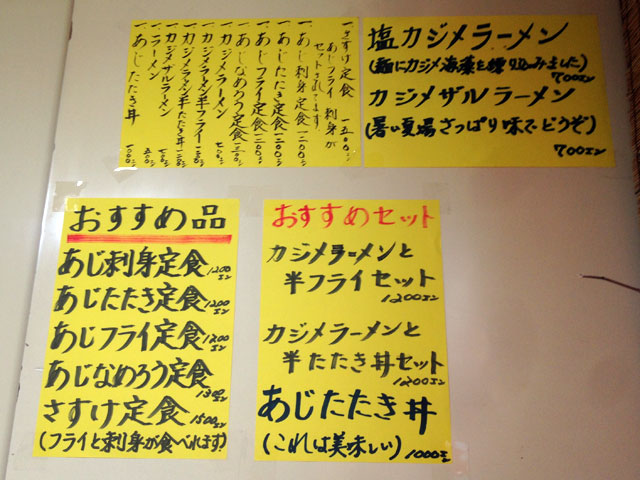 一さすけ定食 一五〇〇エン
あじフライ 刺身が
セットされてます
一あじ刺身定食 一二〇〇エン
一あじたたき定食 一二〇〇エン
一あじフライ定食 一二〇〇エン
一あじなめろう定食
一カジメラーメン 七〇〇エン
一カジメラーメン半フライ
一カジメラーメン半たたき丼
一カジメザルラーメン 七〇〇エン
一ラーメン 五〇〇エン
一あじたたき丼 一〇〇〇エン
塩カジメラーメン
(麺にカジメ海藻を練り込みました)
700エン
カジメザルラーメン
(暑い夏場さっぱり味でどうぞ)
700エン
おすすめ品
あじ刺身定食1200エン
あじたたき定食1200エン
あじフライ定食1200エン
あじなめろう定食
1300エン
さすけ定食1500エン
(フライと刺身が食べれます)
おすすめセット
カジメラーメンと
半フライセット
1200エン
カジメラーメンと
半たたき丼セット
1200エン
あじたたき丼
(これは美味しい)1000エン